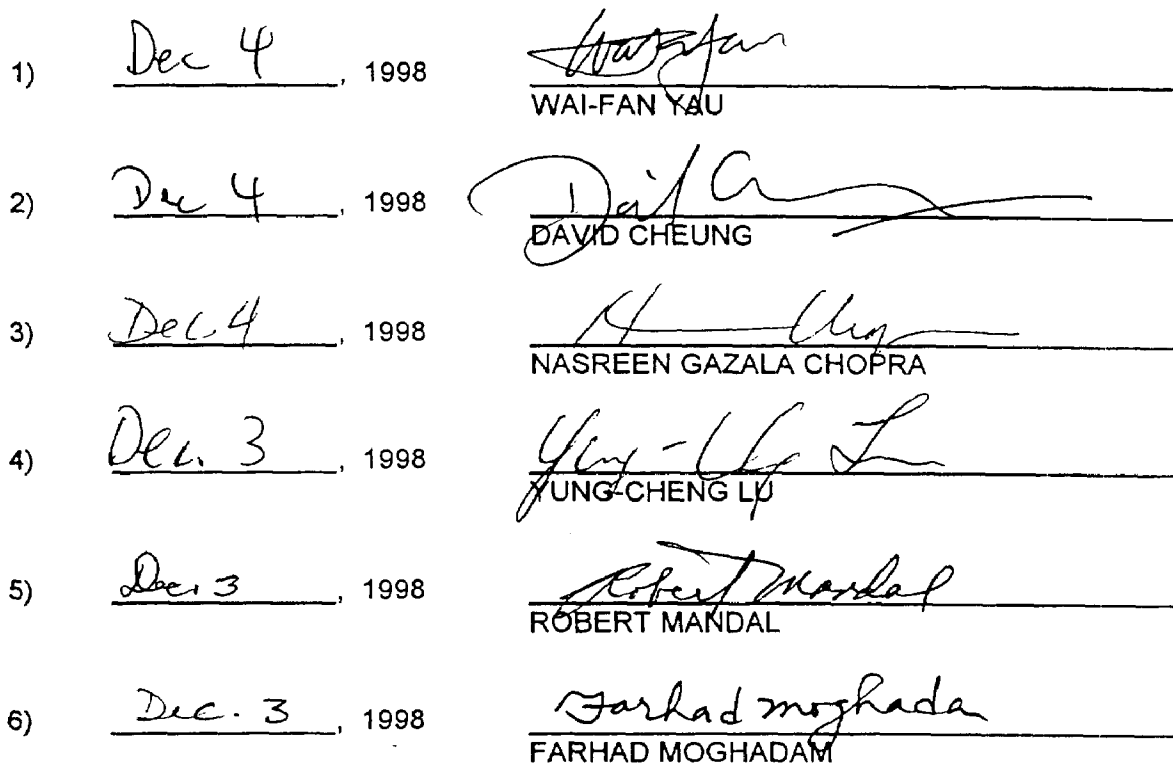 1) Dec 4, 1998 Wai-Fan
WAI-FAN YAU
2) Dec 4, 1998 David C
DAVID CHEUNG
3) Dec. 4, 1998
NASREEN GAZALA CHOPRA
4) Dec. 3, 1998 Yung-Cheng Lu
YUNG-CHENG LU
5) Dec. 3, 1998 Robert Mandal
ROBERT MANDAL
6) Dec. 3, 1998 Farhad Moghadam
FARHAD MOGHADAM